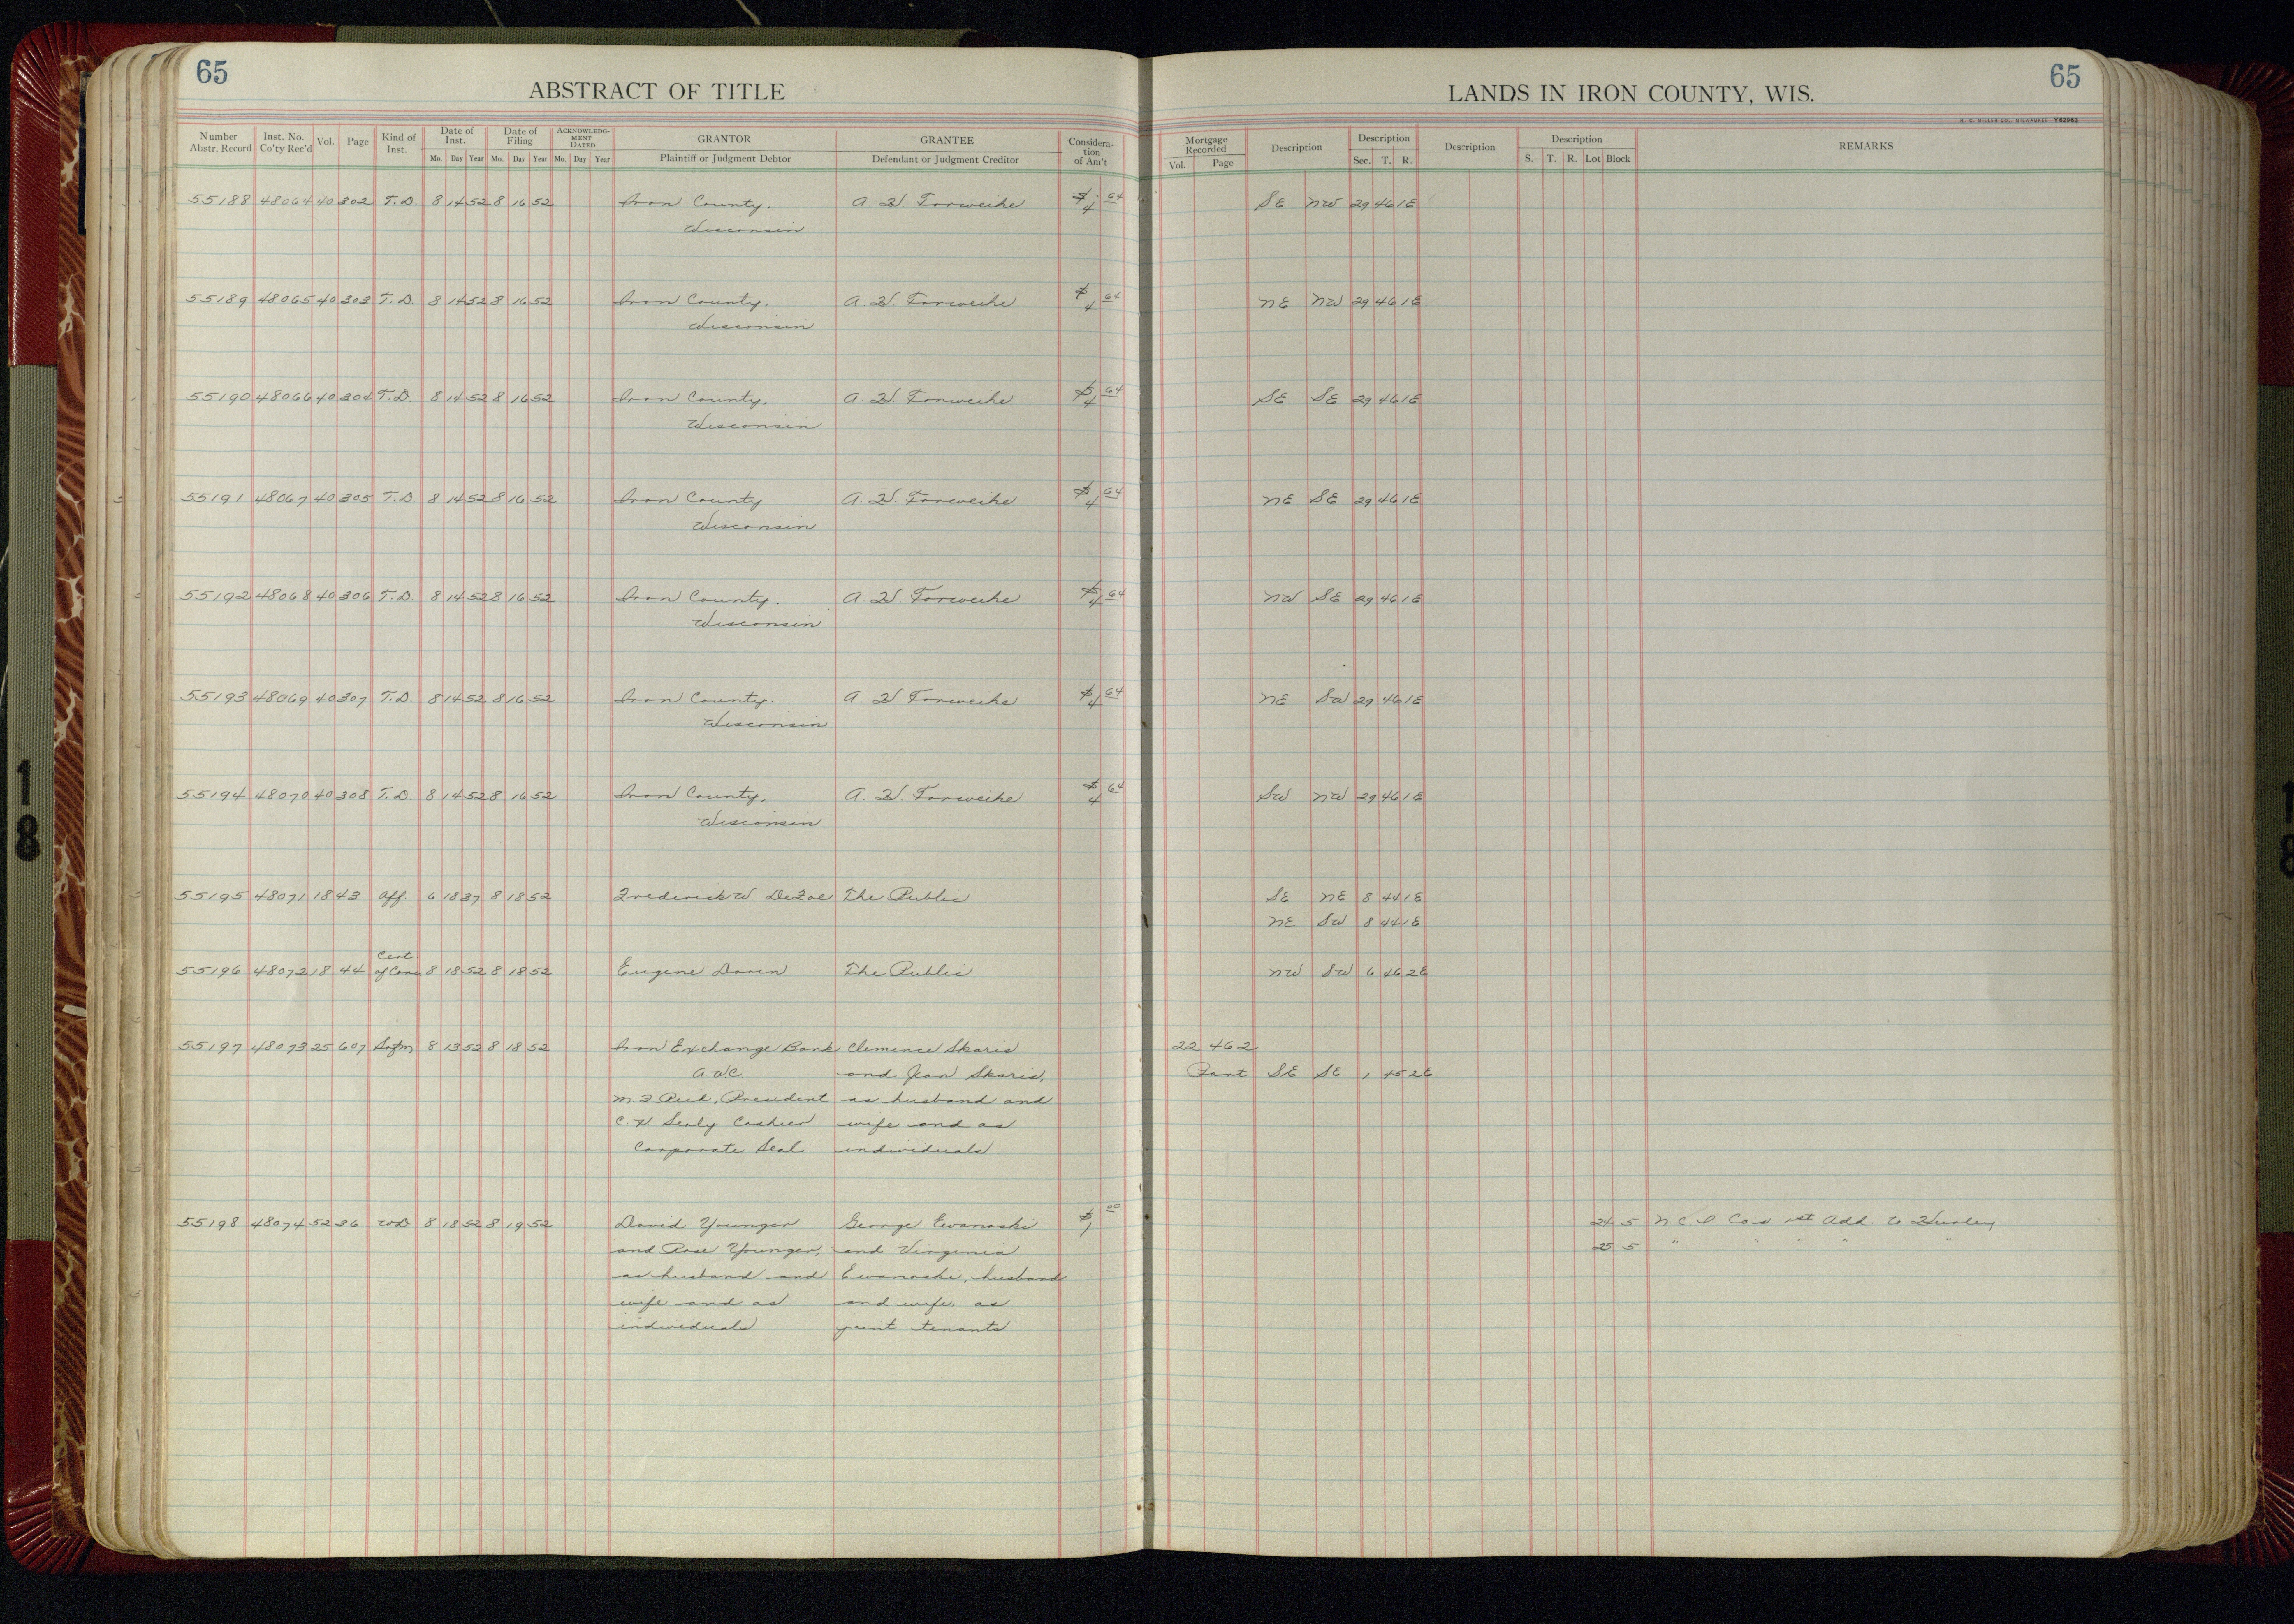 65
ABSTRACT OF TITLE
LANDS IN IRON COUNTY, WIS.
65
H. C. MILLER CO., MILWAUKEE Y82963
Number Abstr. Record Inst. No. Co'ty Rec'd Vol. Page Kind of Inst. Date of Inst. Mo. Day Year Date of Filing Mo. Day Year ACKNOWLEDG-MENT DATED Mo. Day Year GRANTOR Plaintiff or Judgment Debtor GRANTEE Defendant or Judgment Creditor Considera-tion of Am't Mortgage Recorded Vol. Page Description Description Sec. T. R. Description Description S. T. R. Lot Block REMARKS
55188 48064 40 302 T.D. 8 14 52 8 16 52 Iron County, A. W. $4.64 SE NW 29 46 1E
Wisconsin
55189 48065 40 303 T.D. 8 14 52 8 16 52 Iron County, A. W. $4 64 NE NW 29 46 1E
Wisconsin
55190 48066 40 304 T.D. 8 14 52 8 16 52 Iron County, A. W. $4 64 SE SE 29 46 1E
Wisconsin
55191 48067 40 305 T.D 8 14 52 8 16 52 Iron County A. W. $4 64 NE SE 29 46 1E
Wisconsin
55192 48068 40 306 T.D. 8 14 52 8 16 52 Iron County. A. W. $4 64 NW SE 29 46 1E
Wisconsin
55193 48069 40 307 T.D. 8 14 52 8 16 52 Iron County. A. W. $4 64 NE SW 29 46 1E
Wisconsin
55194 48070 40 308 T.D. 8 14 52 8 16 52 Iron County, A. W. $4 64 SW NW 29 46 1E
Wisconsin
55195 48071 18 43 Aff. 6 18 37 8 18 52 Frederick W. The Public SE NE 8 44 1E
NE SW 8 44 1E
Cert
55196 48072 18 44 of 8 18 52 8 18 52 Eugene The Public NW SW 6 46 2E
55197 48073 25 607 8 13 52 8 18 52 Iron Exchange Bank Clemence Skaris 22 462
and Jean Skaris, Part SE SE 1 45 2E
President as husband and
C. Cashier wife and as
Corporate Seal individuals
55198 48074 52 36 WD 8 18 52 8 19 52 David Younger George Ewanoski $1 00 24 5 N C I Co's 1st Add. to Hurley
and Rose Younger, and Virginia 25 5 " " " " "
as husband and Ewanoski, husband
wife and as and wife, as
individuals joint tenants
18